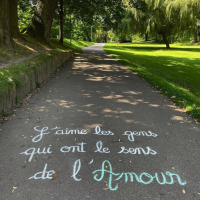 J'aime les gens
qui ont le sens
de l'Amour